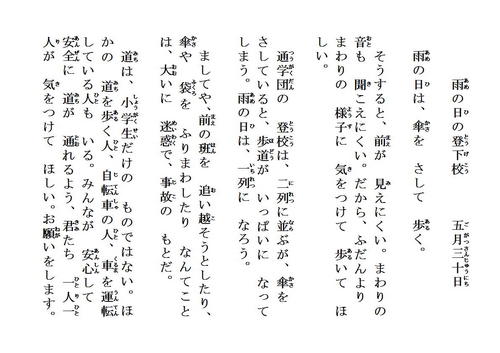 雨の日の登下校　　五月三十日
雨の日は、傘を　さして　歩く。
そうすると、前が　見えにくい。まわりの
音も　聞こえにくい。だから、ふだんより
まわりの　様子に　気をつけて　歩いて　ほ
しい。
通学団の　登校は、二列に並ぶが、傘を
さしていると、歩道が　いっぱいに　なって
しまう。雨の日は、一列に　なろう。
ましてや、前の班を　追い越そうとしたり、
傘や　袋を　ふりまわしたり　なんてこと
は、大いに　迷惑で、事故の　もとだ。
道は、小学生だけの　ものではない。ほ
かの　道を歩く人、自転車の人、車を運転
している人も　いる。みんなが　安心して
安全に　道が　通れるよう、君たち　一人一
人が　気をつけて　ほしい。お願いをします。